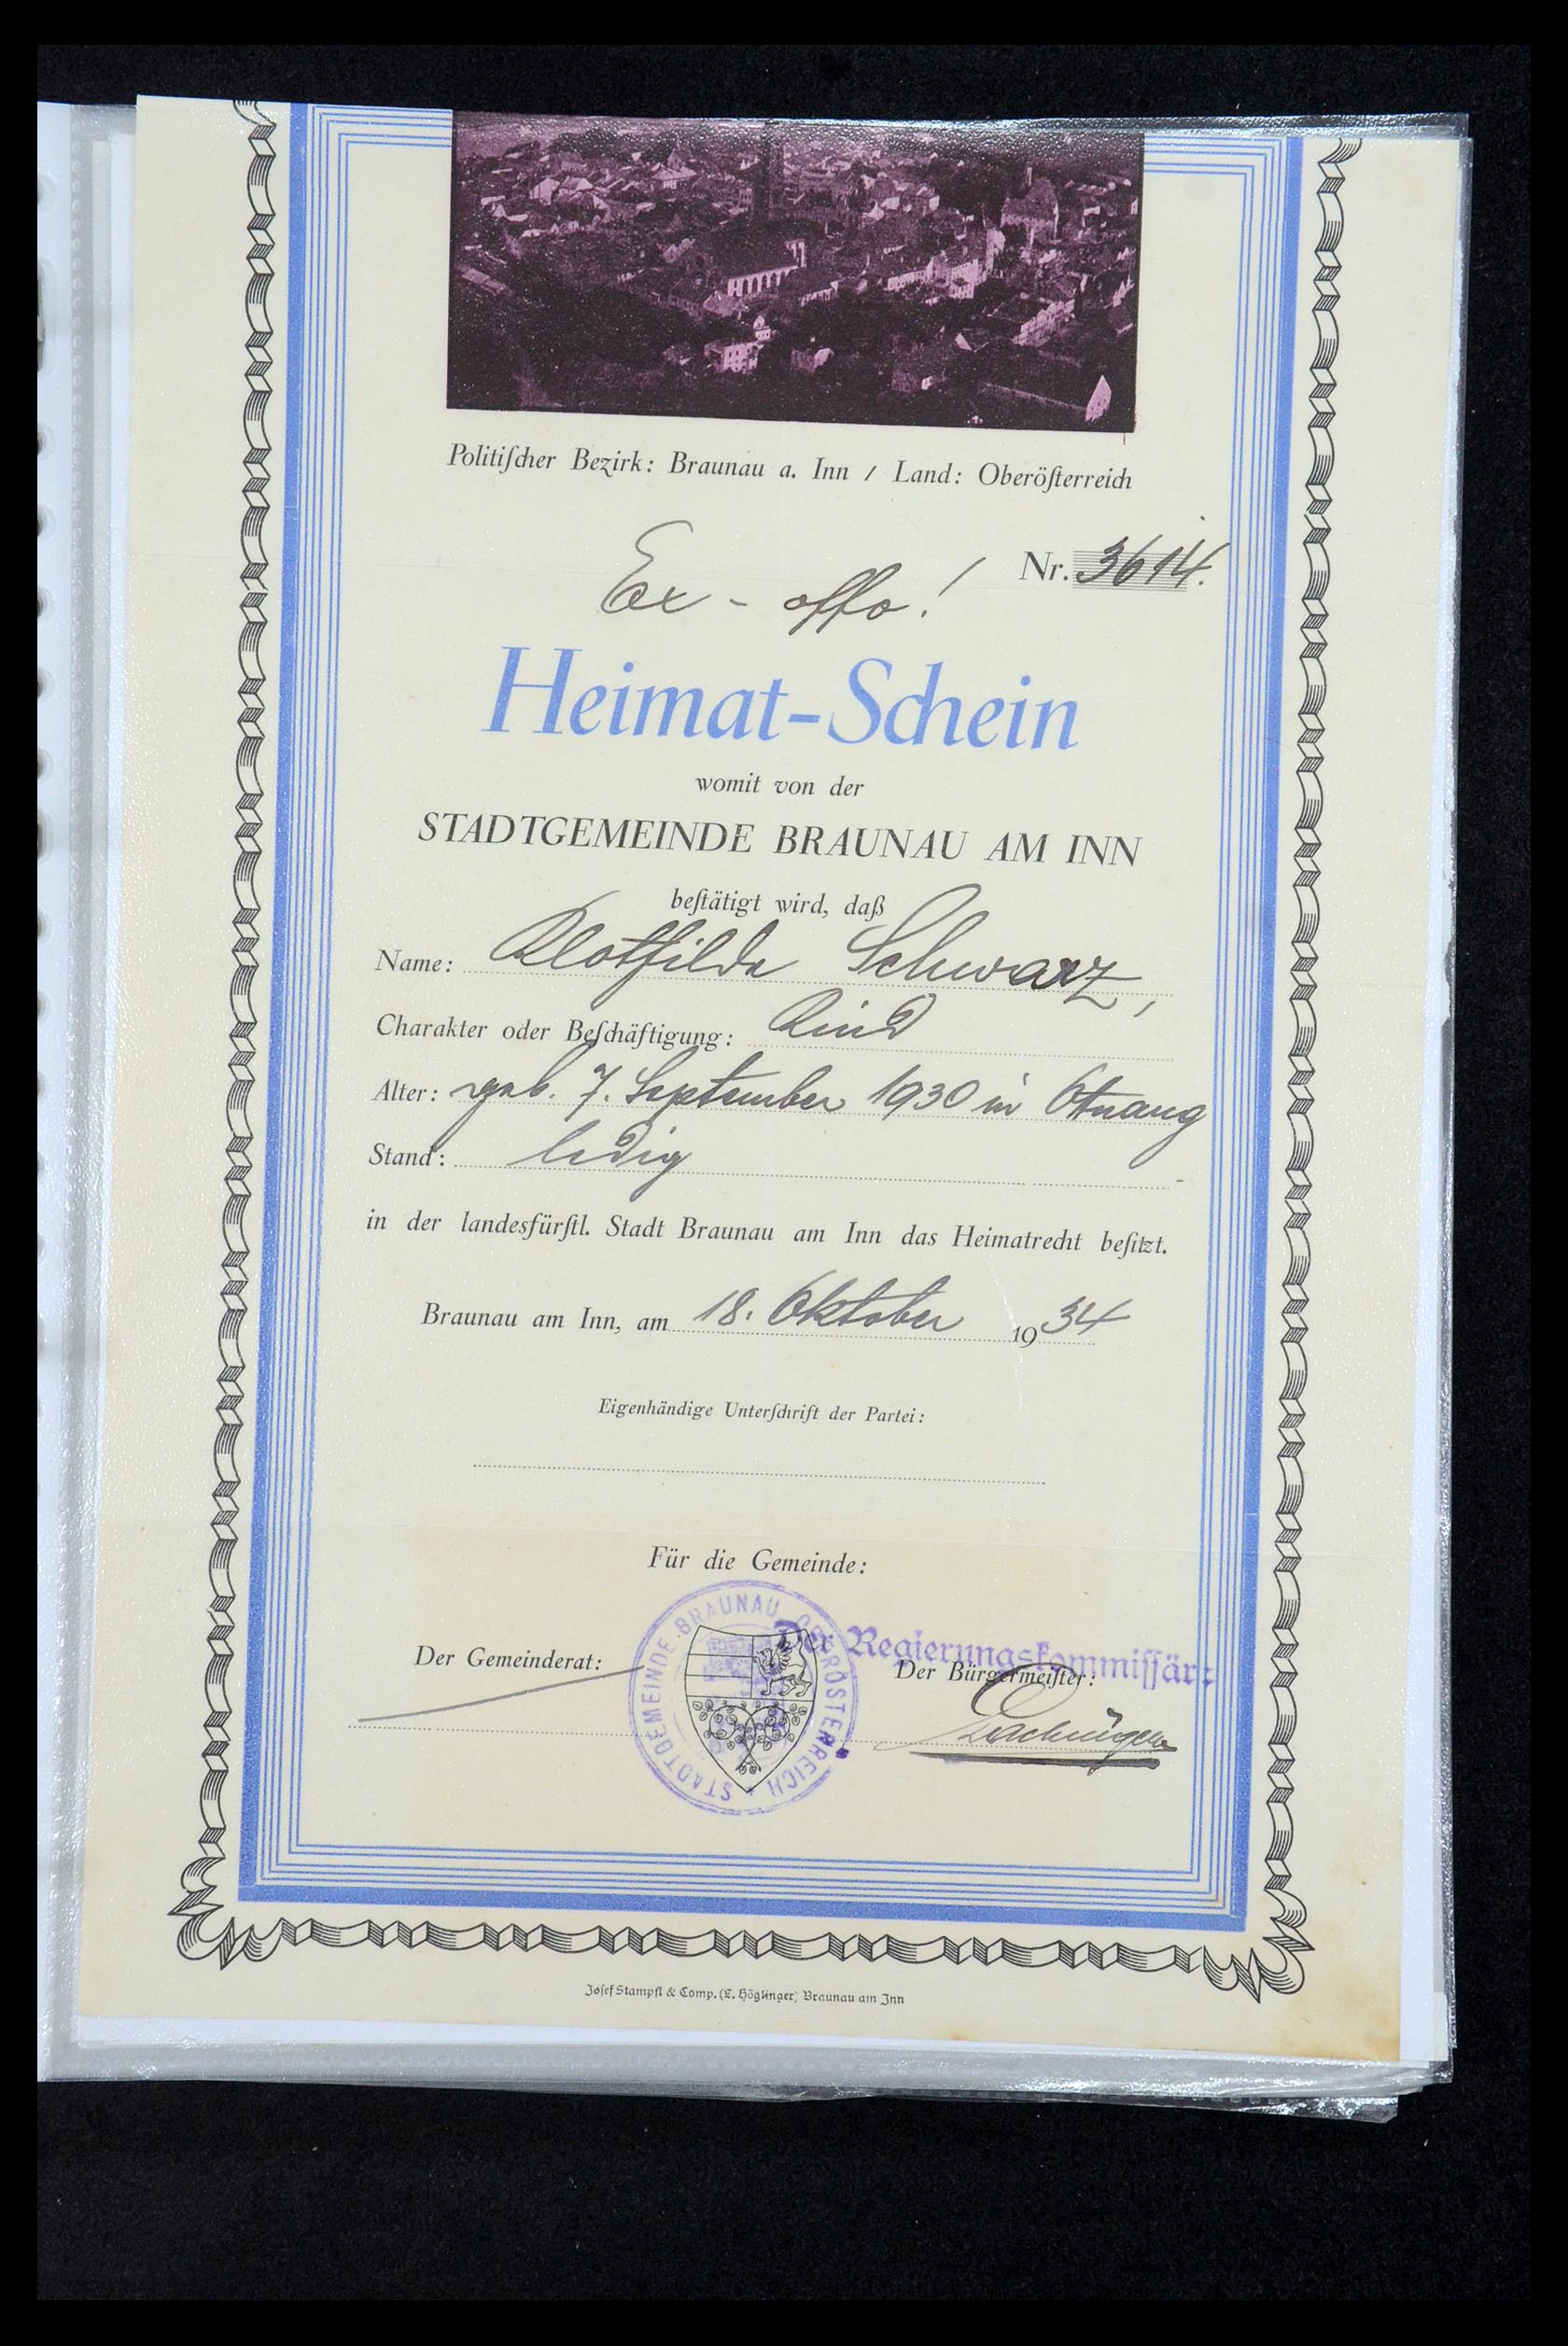 Politiſcher Bezirk: Braunau a. Inn / Land: Oberöſterreich
Nr. 3614.
Ex-offo!
Heimat-Schein
womit von der
STADTGEMEINDE BRAUNAU AM INN
beſtätigt wird, daß
Name: Klothilde Schwarz,
Charakter oder Beſchäftigung: Kind
Alter: geb. 7. September 1930 in Ottnang
Stand: ledig
in der landesfürſtl. Stadt Braunau am Inn das Heimatrecht beſitzt.
Braunau am Inn, am 18. Oktober 1934
Eigenhändige Unterſchrift der Partei:
Für die Gemeinde:
STADTGEMEINDE BRAUNAU OBERÖSTERREICH
Der Regierungskommiſſär:
Der Gemeinderat:
Der Bürgermeiſter:
Joſef Stampfl & Comp. (E. Höglinger) Braunau am Inn